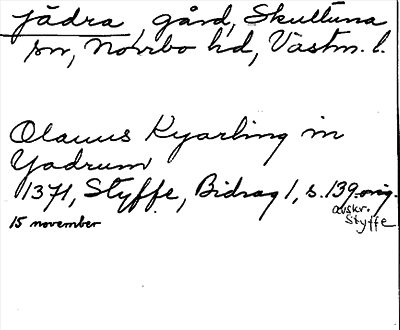 Jädra, gård, Skultuna
sn, Norrbo hd, Västm. l.
Olauus Kyarling in
Yadrum
1371, Styffe, Bidrag 1, s. 139 orig.
avskr.
Styffe
15 november